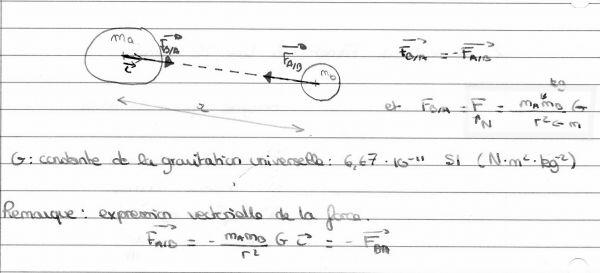 m_a F_B/A F_A/B m_b
i
r
F_B/A = - F_A/B
kg
et F_B/A = F = m_A m_B G / r² ← m
N
G : constante de la gravitation universelle : 6,67 · 10⁻¹¹ SI (N·m²·kg⁻²)
Remarque : expression vectorielle de la force.
F_A/B = - m_A m_B / r² G i = - F_B/A